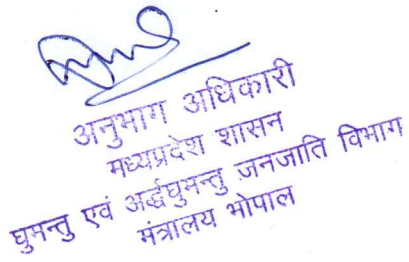 अनुभाग अधिकारी
मध्यप्रदेश शासन
घुमन्तु एवं अर्द्धघुमन्तु जनजाति विभाग
मंत्रालय भोपाल